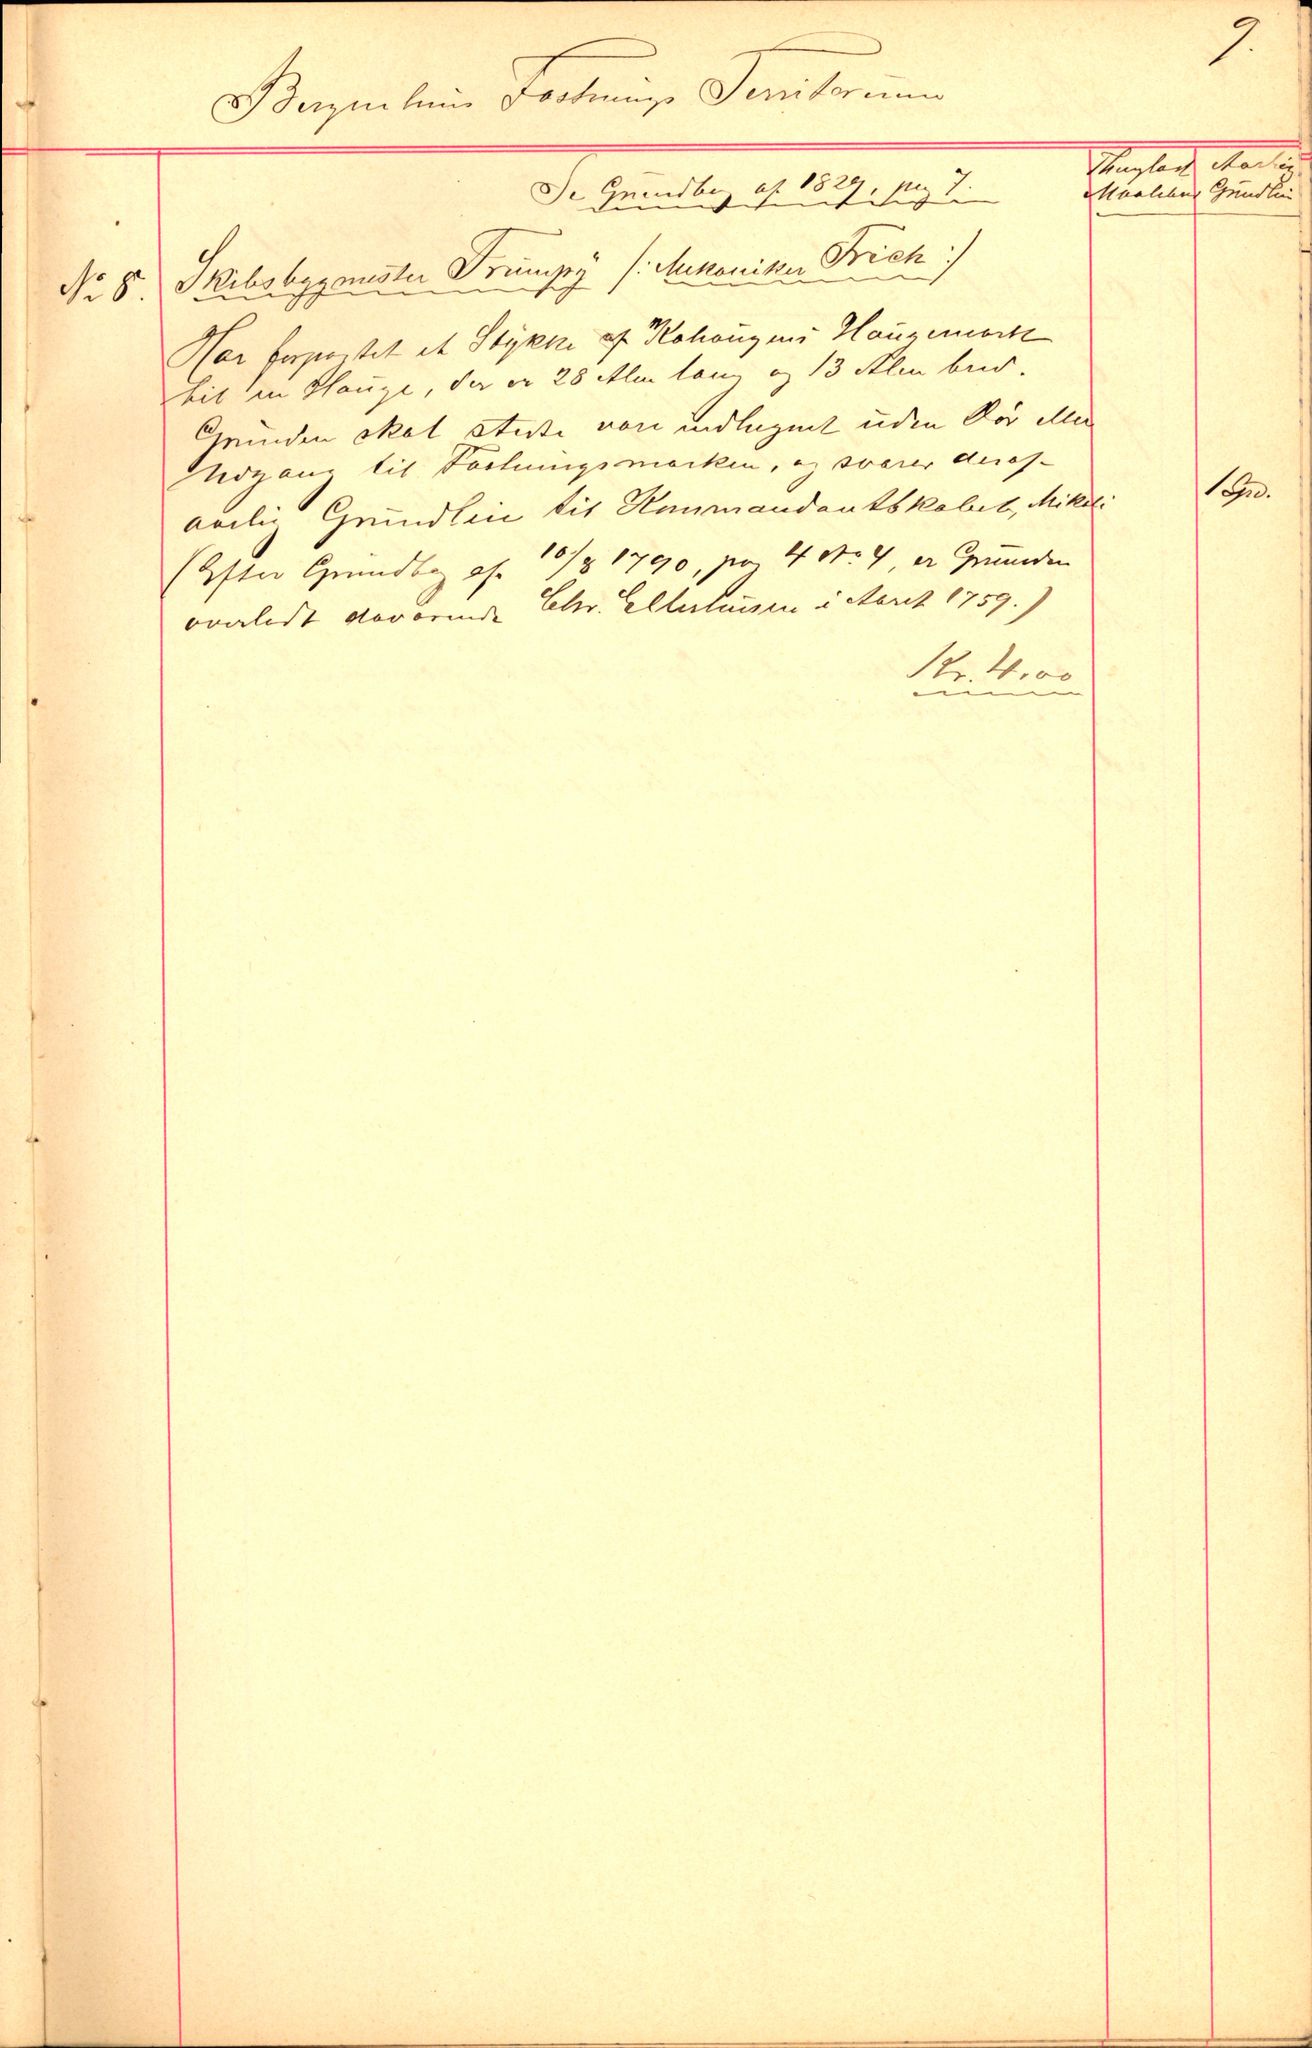 9.
Bergenhus Fæstnings Territorium
Se Grundbog af 1829, pag 7.
Thinglæst Aarlig
Maalebrev Grundleie
No 8. Skibsbygmester Trumpÿ /: Mekaniker Frich :/
Har forpagtet et Stykke af Kohaugens Haugemark
til en Hauge, der er 28 Alen lang og 13 Alen bred.
Grunden skal stedse være indhegnet uden Dør eller
Nedgang til Fæstningsmarken, og svarer deraf
aarlig Grundleie til Kommandantskabet, Mikali: 1 Spd.
(Efter Grundbog af 10/8 1790, pag 4 No 4, er Grunden
overladt daværende Chr. Ellerhusen i Aaret 1759.)
Kr. 4.00